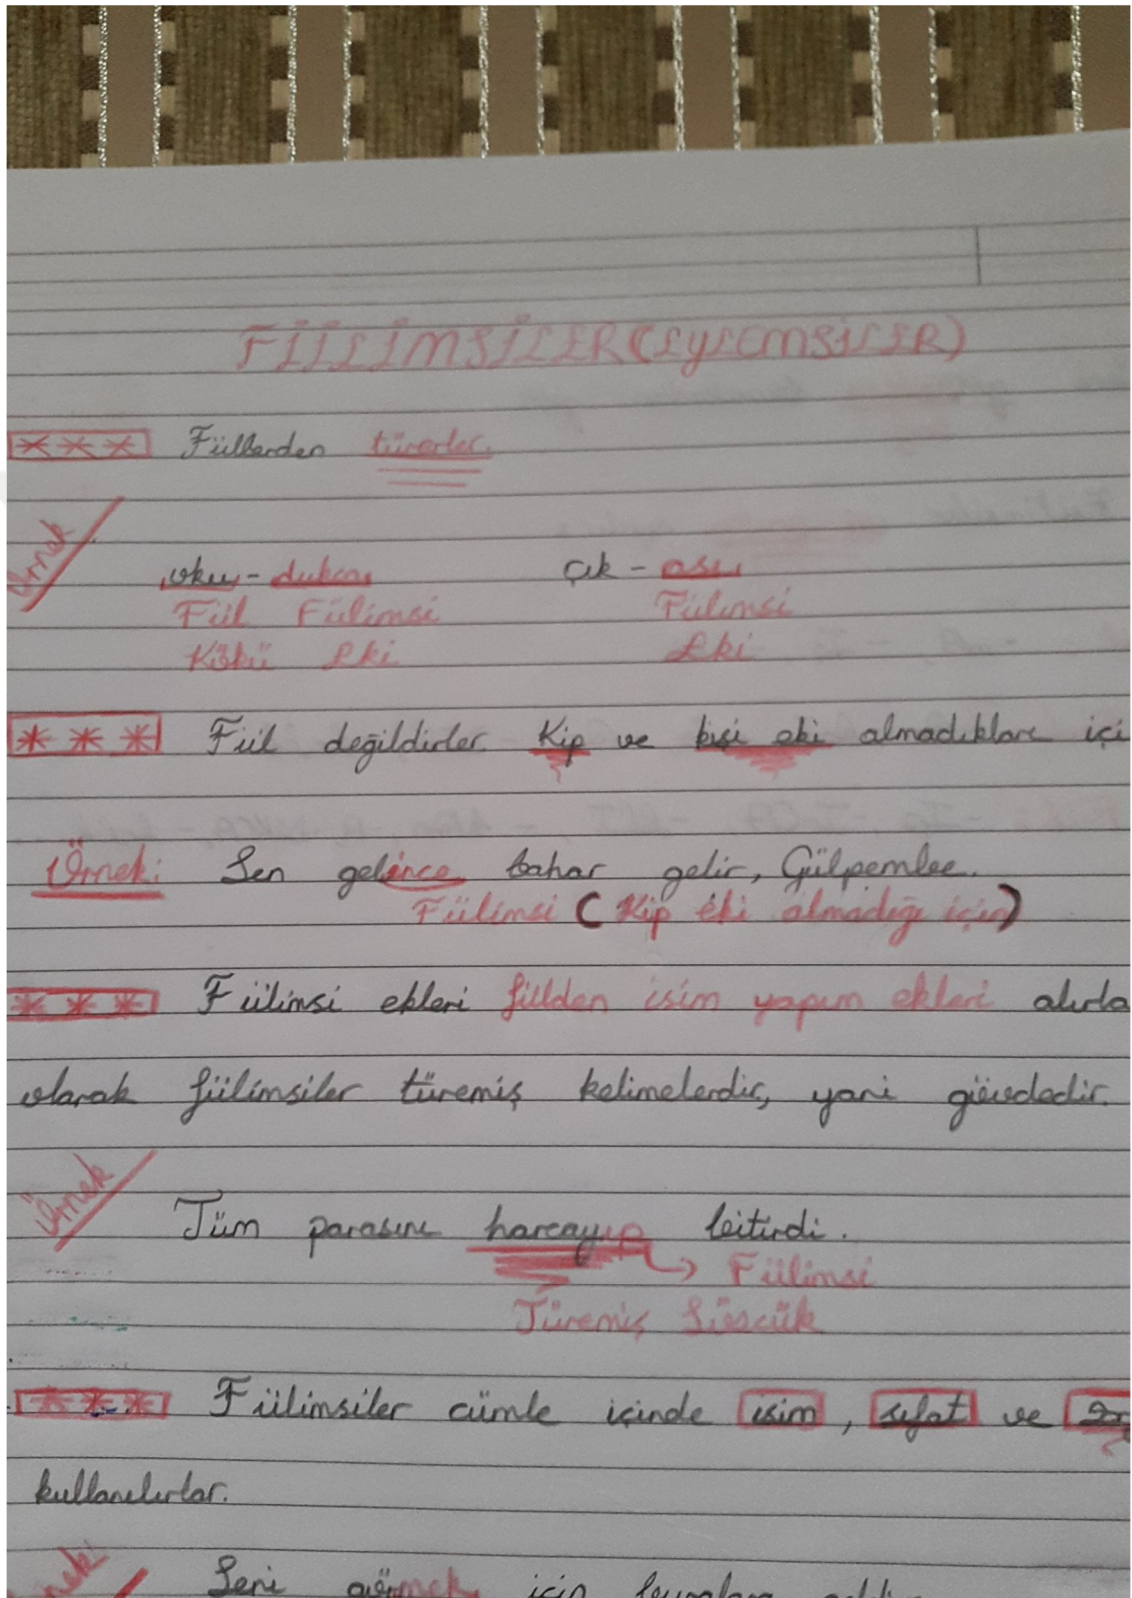 FİİLİMSİLER (EYLEMSİLER)
*** Fiillerden türerler.
Örnek
oku - dukca çık - ası
Fiil Fiilimsi Fiilimsi
Kökü Eki Eki
*** Fiil değildirler. Kip ve kişi eki almadıkları içi
Örnek: Sen gelince bahar gelir, Gülpembe.
Fiilimsi (Kip eki almadığı için)
*** Fiilimsi ekleri fiilden isim yapım ekleri
olarak fiilimsiler türemiş kelimelerdir, yani gövdedir.
Örnek
Tüm parasını harcayıp bitirdi.
→ Fiilimsi
Türemiş Sözcük
*** Fiilimsiler cümle içinde isim, sıfat ve
kullanılırlar.
Seni görmek için